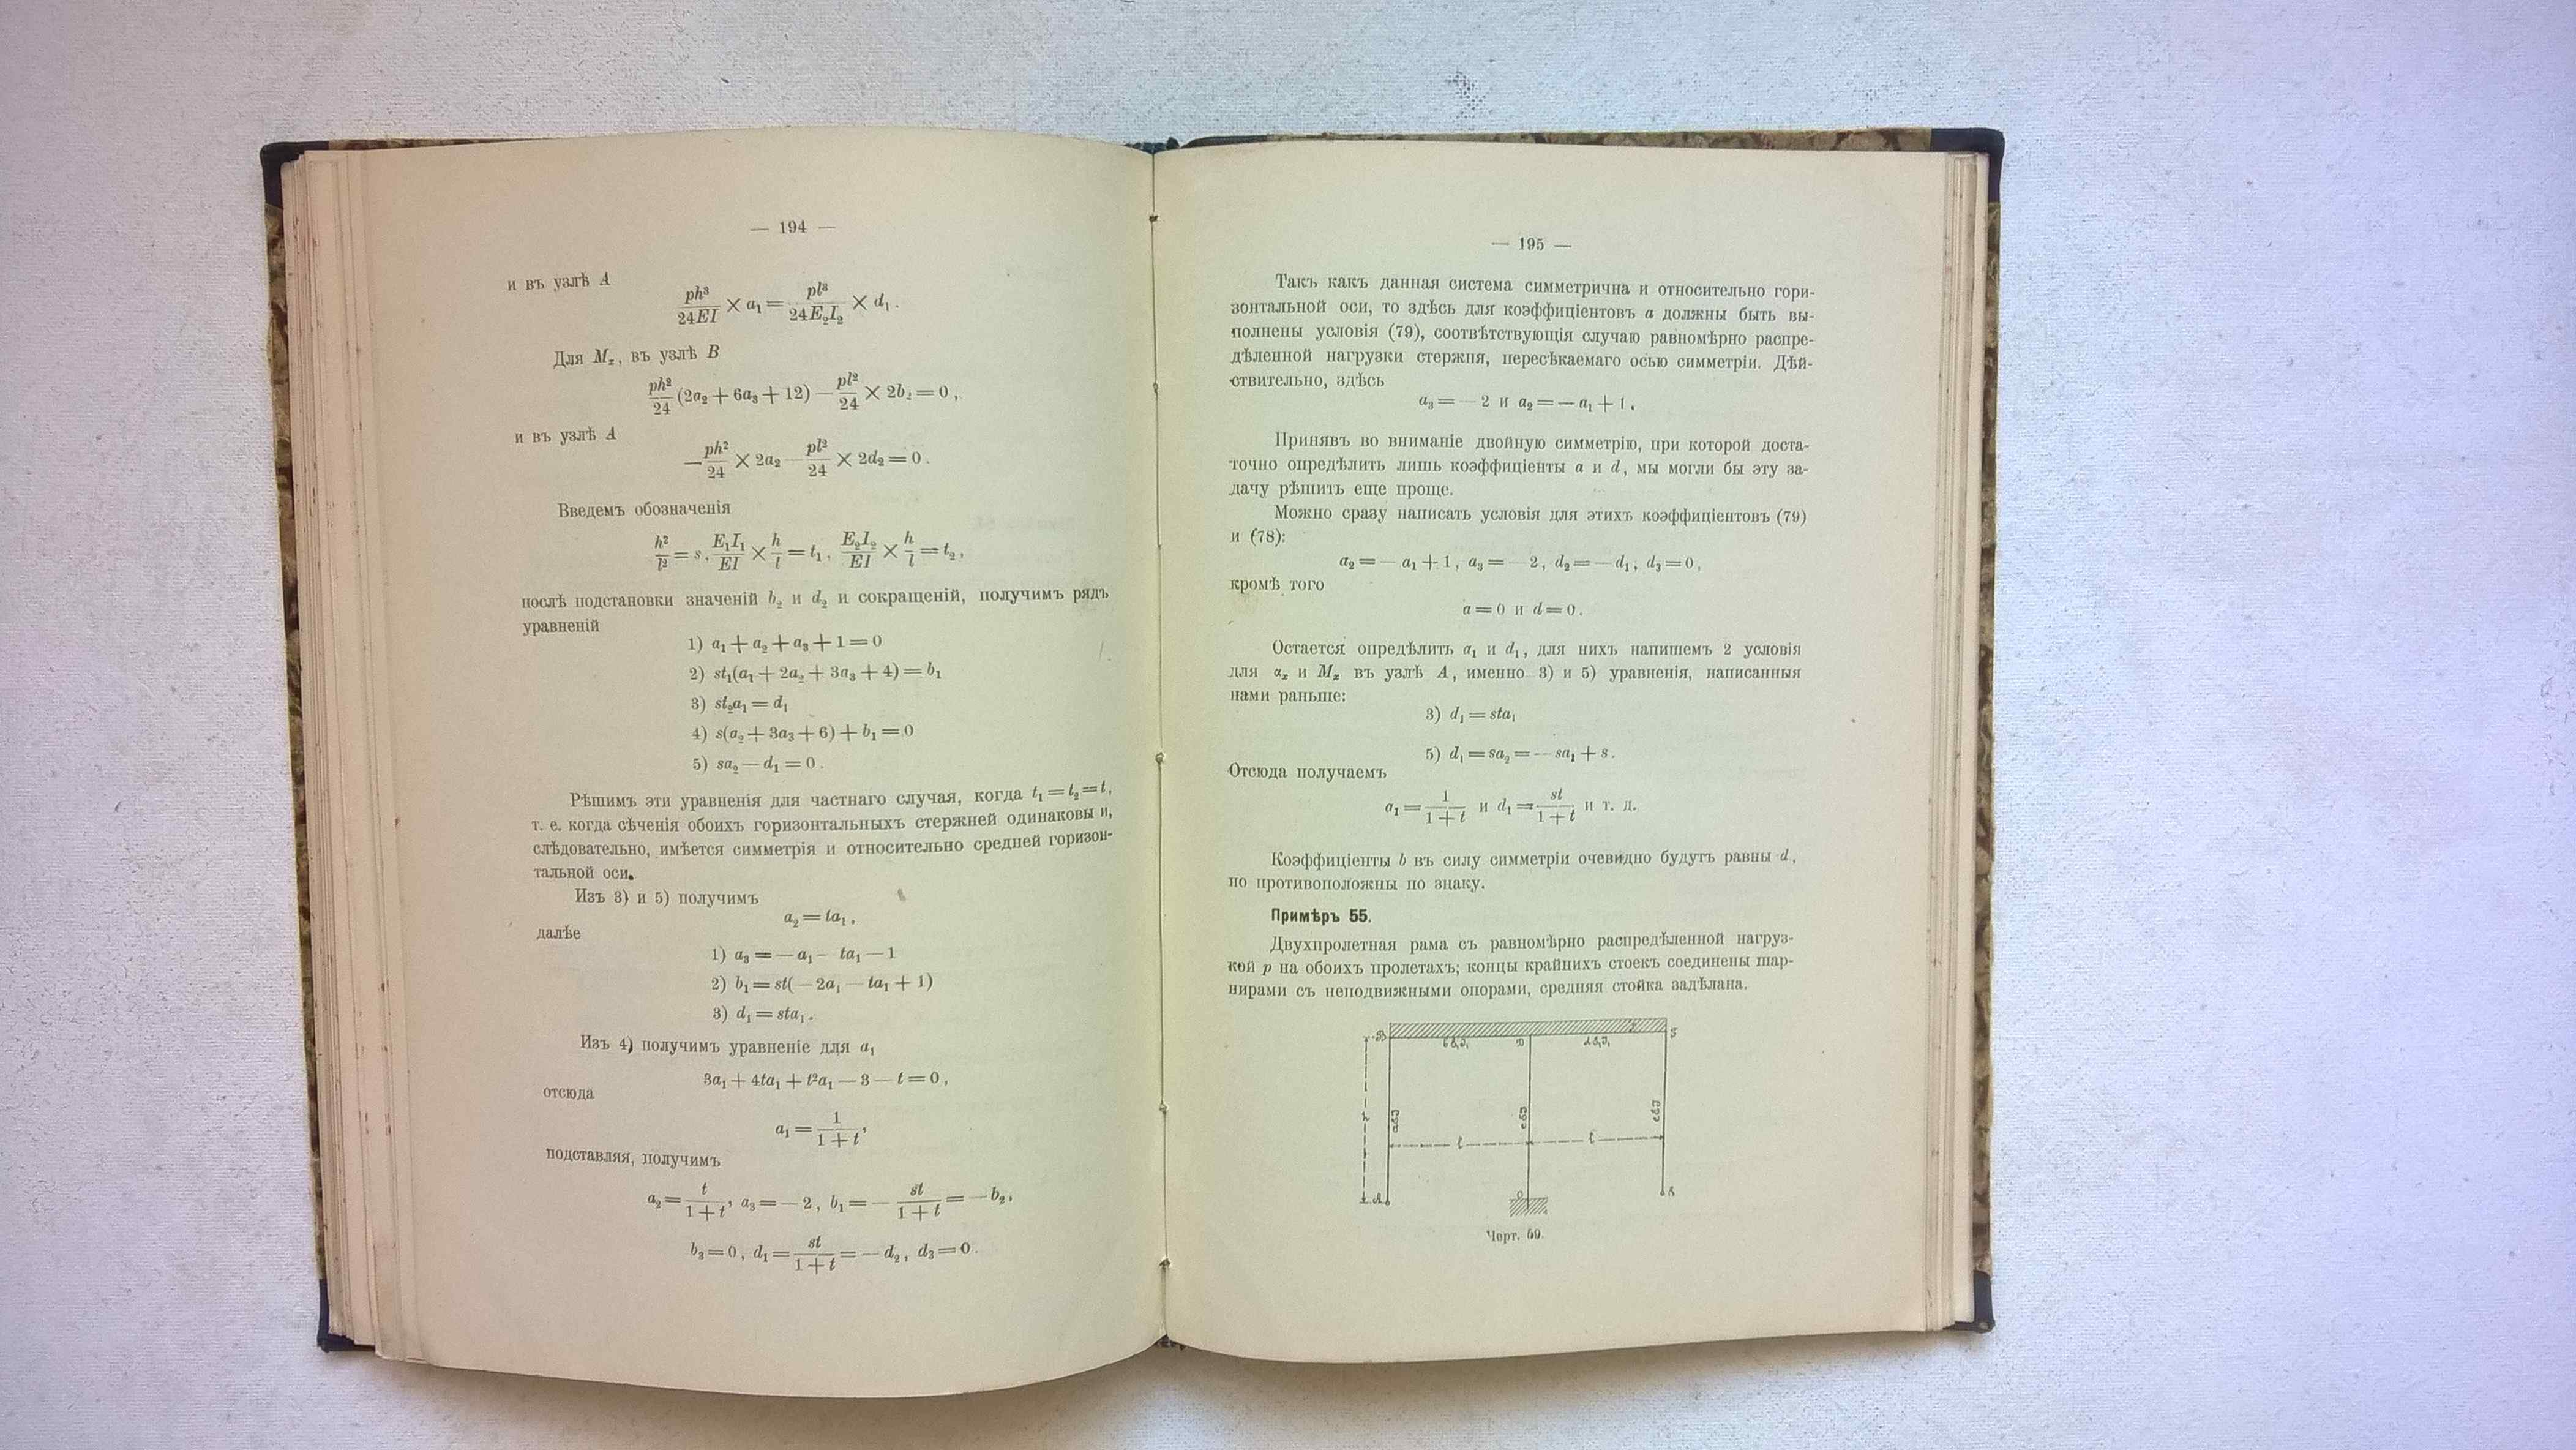 — 194 —
и въ узлѣ A
ph³/24EI × a₁ = pl³/24E₂I₂ × d₁ .
Для Mₓ, въ узлѣ B
ph²/24 (2a₂ + 6a₃ + 12) — pl²/24 × 2b₂ = 0 ,
и въ узлѣ A
— ph²/24 × 2a₂ — pl²/24 × 2d₂ = 0 .
Введемъ обозначенія
h²/l² = s , E₁I₁/EI × h/l = t₁ , E₂I₂/EI × h/l = t₂ ,
послѣ подстановки значеній b₂ и d₂ и сокращеній, получимъ рядъ
уравненій
1) a₁ + a₂ + a₃ + 1 = 0
2) st₁(a₁ + 2a₂ + 3a₃ + 4) = b₁
3) st₂a₁ = d₁
4) s(a₂ + 3a₃ + 6) + b₁ = 0
5) sa₂ — d₁ = 0 .
Рѣшимъ эти уравненія для частнаго случая, когда t₁ = t₂ = t,
т. е. когда сѣченія обоихъ горизонтальныхъ стержней одинаковы и,
слѣдовательно, имѣется симметрія и относительно средней горизон-
тальной оси.
Изъ 3) и 5) получимъ
a₂ = ta₁ ,
далѣе
1) a₃ = — a₁ — ta₁ — 1
2) b₁ = st( — 2a₁ — ta₁ + 1)
3) d₁ = sta₁ .
Изъ 4) получимъ уравненіе для a₁
3a₁ + 4ta₁ + t²a₁ — 3 — t = 0 ,
отсюда
a₁ = 1/1 + t ,
подставляя, получимъ
a₂ = t/1 + t , a₃ = — 2 , b₁ = — st/1 + t = — b₂ ,
b₃ = 0 , d₁ = st/1 + t = — d₂ , d₃ = 0 .
— 195 —
Такъ какъ данная система симметрична и относительно гори-
зонтальной оси, то здѣсь для коэффиціентовъ a должны быть вы-
полнены условія (79), соотвѣтствующія случаю равномѣрно распре-
дѣленной нагрузки стержня, пересѣкаемаго осью симметріи. Дѣй-
ствительно, здѣсь
a₃ = — 2 и a₂ = — a₁ + 1 .
Принявъ во вниманіе двойную симметрію, при которой доста-
точно опредѣлить лишь коэффиціенты a и d, мы могли бы эту за-
дачу рѣшить еще проще.
Можно сразу написать условія для этихъ коэффиціентовъ (79)
и (78):
a₂ = — a₁ + 1 , a₃ = — 2 , d₂ = — d₁ , d₃ = 0 ,
кромѣ того
a = 0 и d = 0 .
Остается опредѣлить a₁ и d₁ , для нихъ напишемъ 2 условія
для αₓ и Mₓ въ узлѣ A, именно 3) и 5) уравненія, написанныя
нами раньше:
3) d₁ = sta₁
5) d₁ = sa₂ = — sa₁ + s .
Отсюда получаемъ
a₁ = 1/1 + t и d₁ = st/1 + t и т. д.
Коэффиціенты b въ силу симметріи очевидно будутъ равны d ,
но противоположны по знаку.
Примѣръ 55.
Двухпролетная рама съ равномѣрно распредѣленной нагруз-
кой p на обоихъ пролетахъ; концы крайнихъ стоекъ соединены шар-
нирами съ неподвижными опорами, средняя стойка задѣлана.
B
D
h
l
l
A
C
Черт. 59.